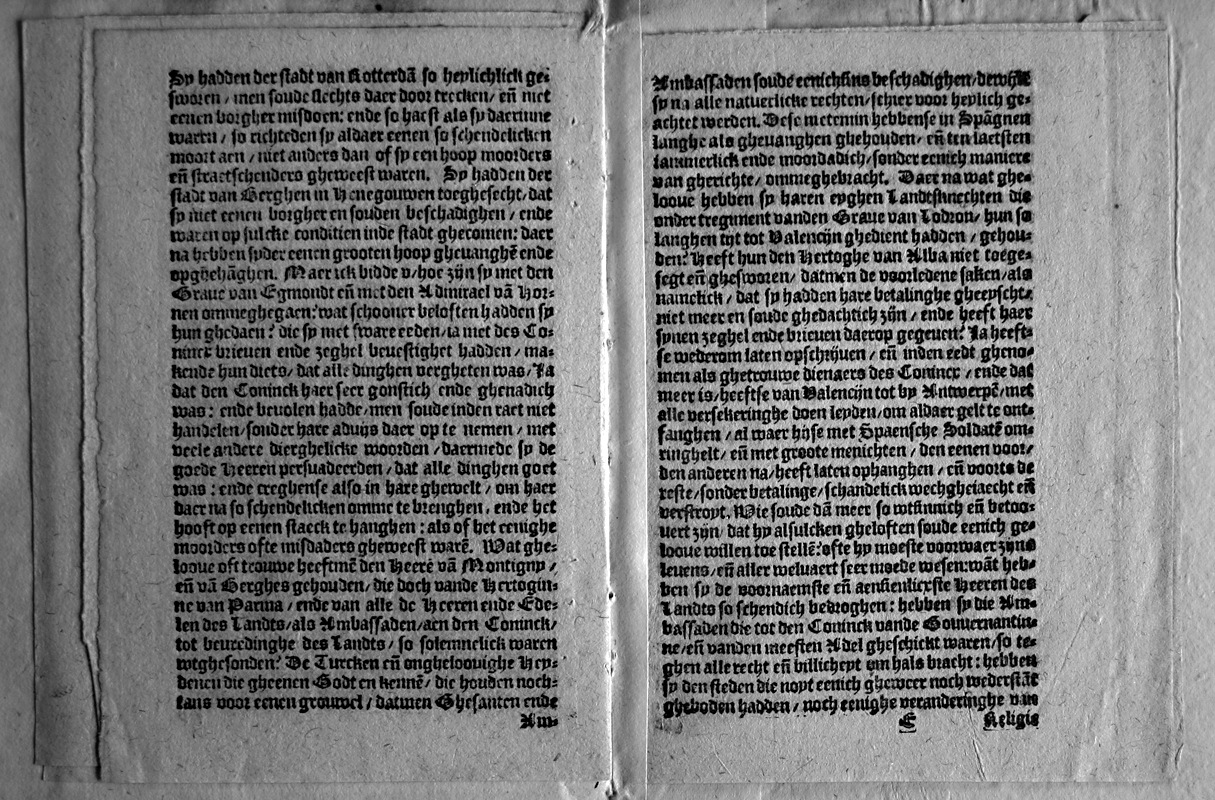 Sy hadden der stadt van Rotterdā so heylichlick ge-
sworen / men soude slechts daer door trecken / eñ niet
eenen borgher misdoen: ende so haest als sy daerinne
waren / so richteden sy aldaer eenen so schendelicken
moort aen / niet anders dan of sy een hoop moorders
eñ straetschenders gheweest waren. Sy hadden der
stadt van Berghen in Henegouwen toeghesecht / dat
sy niet eenen borgher en souden beschadighen / ende
waren op sulcke conditien inde stadt ghecomen: daer
na hebben syder eenen grooten hoop gheuanghē ende
opgehāghen. Maer ick bidde v / hoe zijn sy met den
Graue van Egmondt eñ met den Admirael vā Hor-
nen ommeghegaen? wat schooner beloften hadden sy
hun ghedaen? die sy met sware eeden / ia met des Co-
nincx brieuen ende zeghel beuestighet hadden / ma-
kende hun diets / dat alle dinghen vergheten was / Ja
dat den Coninck haer seer gonstich ende ghenadich
was: ende beuolen hadde / men soude inden raet niet
handelen / sonder hare aduijs daer op te nemen / met
veele andere dierghelicke woorden / daermede sy de
goede Heeren persuadeerden / dat alle dinghen goet
was: ende creghense also in hare ghewelt / om haer
daer na so schendelicken omme te brenghen / ende het
hooft op eenen staeck te hanghen: als of het eenighe
moorders ofte misdaders gheweest warē. Wat ghe-
looue oft trouwe heeftmē den Heere vā Montigny /
eñ vā Berghes gehouden / die doch vande Hertogin-
ne van Parma / ende van alle de Heeren ende Ede-
len des Landts / als Ambassaden / aen den Coninck /
tot beuredinghe des Landts / so solemnelick waren
wtghesonden? De Turcken eñ ongheloouighe Hey-
denen die gheenen Godt en kennē / die houden noch-
tans voor eenen grouwel / datmen Ghesanten ende
Am-
Ambassaden soude eenichsins beschadighen / dewijle
sy na alle natuerlicke rechten / schier voor heylich ge-
achtet werden. Dese metemin hebbense in Spāgnen
langhe als gheuanghen ghehouden / eñ ten laetsten
iammerlick ende moordadich / sonder eenich maniere
van gherichte / ommeghebracht. Daer na wat ghe-
looue hebben sy haren eyghen Landtsknechten die
onder tregiment vanden Graue van Lodron / hun so
langhen tijt tot Valencijn ghedient hadden / gehou-
den? Heeft hun den Hertoghe van Alba niet toege-
segt eñ ghesworen / datmen de voorledene saken / als
namelick / dat sy hadden hare betalinghe gheeyscht /
niet meer en soude ghedachtich zijn / ende heeft haer
synen zeghel ende brieuen daerop gegeuen? Ja heeft-
se wederom laten opschrijuen / eñ inden eedt gheno-
men als ghetrouwe dienaers des Conincx / ende dat
meer is / heeftse van Valencijn tot by Antwerpē / met
alle versekeringhe doen leyden / om aldaer gelt te ont-
fanghen / al waer hijse met Spaensche Soldatē om-
ringhelt / eñ met groote menichten / den eenen voor /
den anderen na / heeft laten ophanghen / eñ voorts de
reste / sonder betalinge / schandelick wechgheiaecht eñ
verstroyt. Wie soude dā meer so wtsinnich eñ betoo-
uert zijn / dat hy alsulcken gheloften soude eenich ge-
looue willen toe stellē? ofte hy moeste voorwaer zijns
leuens / eñ aller weluaert seer moede wesen: wāt heb-
ben sy de voornaemste eñ aensienlicxste Heeren des
Landts so schendich bedroghen: hebben sy die Am-
bassaden die tot den Coninck vande Gouuernantin-
ne / eñ vanden meesten Adel gheschickt waren / so te-
ghen alle recht eñ billicheyt om hals bracht: hebben
sy den steden die noyt eenich gheweer noch wederstāt
gheboden hadden / noch eenighe veranderinghe van
E Religie